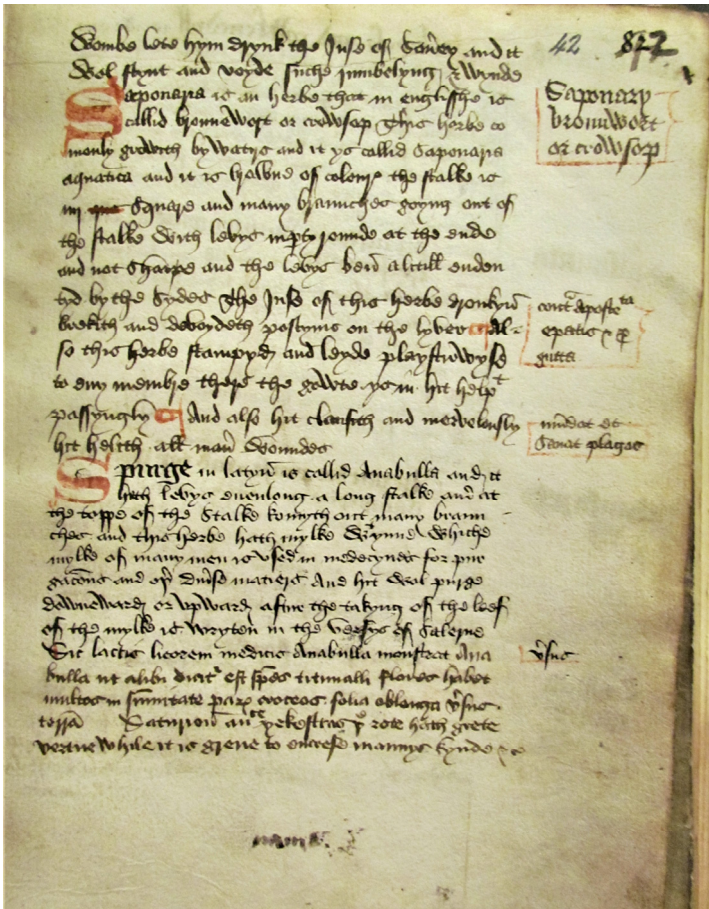 42 827
Wombe lete hym drynk the Juse of Saverey and it
Wol stynt and voyde suche rumbelyng & wynde
Saponaria is an herbe that in englisshe is
callid brounewort or crowsop This herbe co
monly growith by watris and it ys callid Saponaria
aquatica and it is browne of colour the stalke is
iiij square and many braunches goyng out of
the stalke with levys rounde at the ende
and not sharpe and the levys bein a litill enden
tyd by the sydes The Juse of this herbe dronkyn
brekith and devoydeth postyms on the lyver Al-
so this herbe stampyd and leyde playsturwyse
to eny membre there the gowte ys in hit helpt
passyngly And also hit clansith and mervelously
hit helith all man woundes
Saponary
brounwort
or crowsop
contra aposte ta
epatis
gutta
mundat et
Sanat plagas
Spurge in latyn is callid Anabulla and it
hath levys evenlong a long stalke and at
the toppe of the stalke komyth out many braun
ches and this herbe hath mylke wynne whiche
mylke of many men is used in medecynes for pur
gacons and matiers And hit wol purge
downeward or upward after the takyng of the leef
of the mylke is wryton in the versys of Salerne
Sic lactis licorem medicis Anabulla monstrat Ana
bulla ut alibi dicitur est titimalli flores habet
multos in croceos folia oblonga versus
terram Saturion rote hath grete
vertue while it is grene to encrese mannys kynde
versus